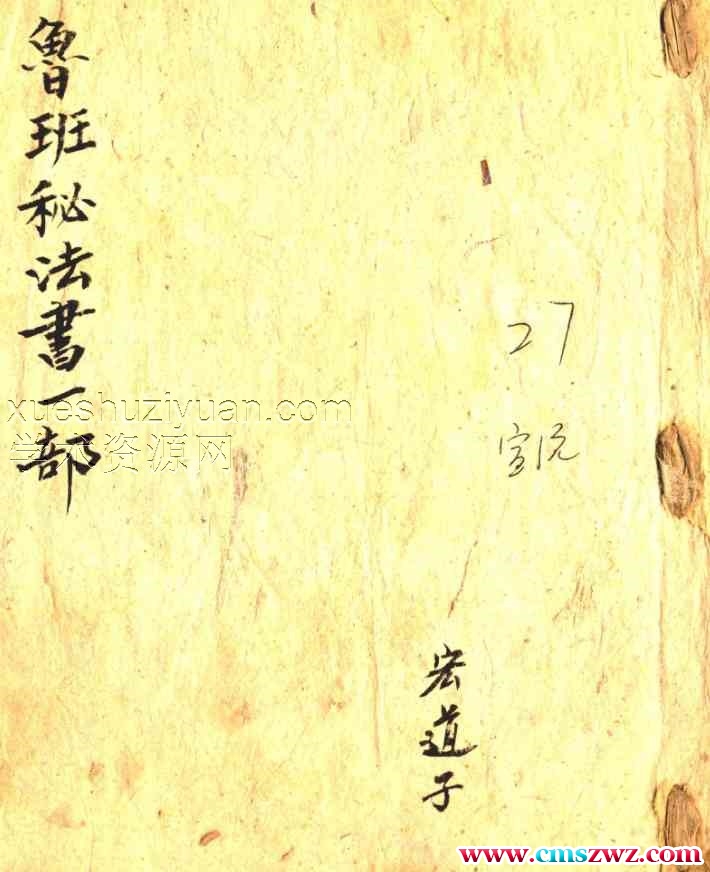 魯班秘法書一部
27
宏道子
xueshuziyuan.com
学术资源网
www.cmszwz.com